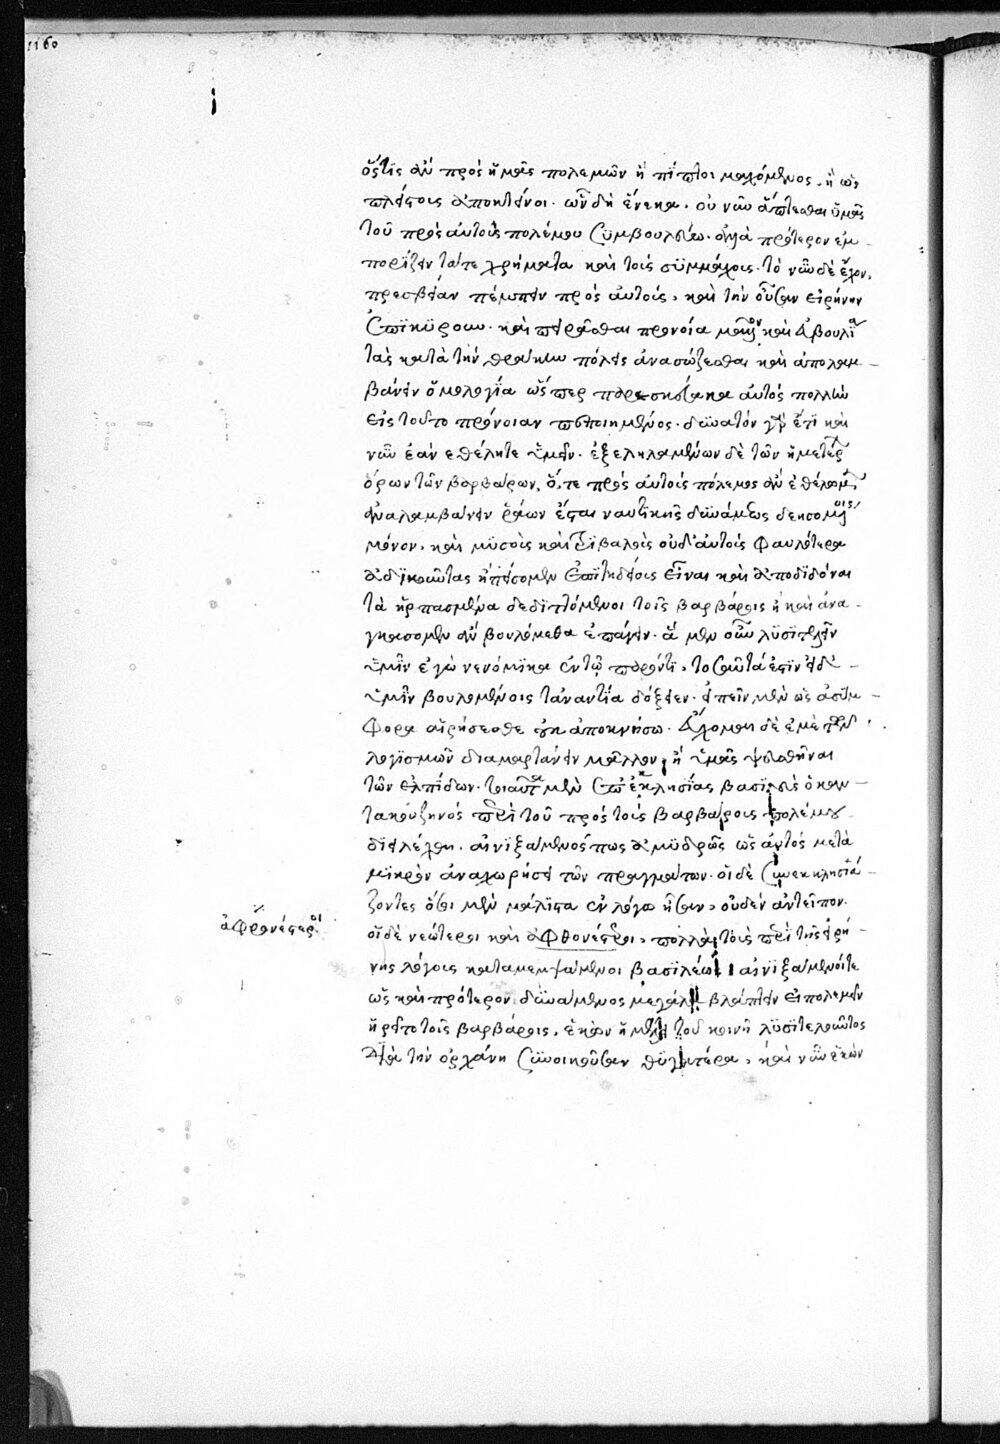 1160
ὅστις ἂν πρὸς ἡμᾶς πολεμῶν ἢ πίπτοι μαχόμενος, ἢ ὡς
πλείστοις ἀποκτείνοι. ὧν δὴ ἕνεκα, οὐ νῦν ἅπτεσθαι ὑμᾶς
τοῦ πρὸς αὐτοὺς πολέμου συμβουλεύω. ἀλλὰ πρότερον ἐμ-
πορίζειν τά τε χρήματα καὶ τοὺς συμμάχους. τὸ νῦν δὲ ἔχον,
πρεσβείαν πέμπειν πρὸς αὐτοὺς, καὶ τὴν οὖσαν εἰρήνην
ἐπικυροῦν. καὶ πειρᾶσθαι προνοία μᾶλλον καὶ εὐβουλία
τὰς κατὰ τὴν θράκην πόλεις ἀνασώζεσθαι καὶ ἀπολαμ-
βάνειν ὁμολογία ὥσπερ παρεσκεύακα αὐτὸς πολλὴν
εἰς τοῦτο πρόνοιαν πεποιημένος. δυνατὸν γὰρ ἔτι καὶ
νῦν ἐὰν ἐθέλητε ὑμεῖς. ἐξεληλαμένων δὲ τῶν ἡμετέρ
ὅρων τῶν βαρβάρων, ὅ, τε πρὸς αὐτοὺς πόλεμος ἂν ἐθέλωμεν
ἀναλαμβάνειν ῥάων ἔσται ναυτικῆς δυνάμεως δεησομένοις
μόνον. καὶ μυσοὺς καὶ τριβαλοὺς οὐδ' αὐτοὺς φαυλότερα
ἀδικοῦντας ἢ πείσομεν ἐπιτηδείους εἶναι καὶ ἀποδιδόναι
τὰ ἡρπασμένα δεδιττόμενοι τοῖς βαρβάροις ἢ καὶ ἀνα-
γκάσομεν ἂν βουλόμεθα ἐπάγειν. ἃ μὲν οὖν λυσιτελεῖν
ὑμῖν ἐγὼ νενόμικα ἐν τῷ παρόντι, τοσαῦτά ἐστιν εἰ δ' -
ὑμῖν βουλομένοις τἀναντία δόξειεν. εἰπεῖν μὲν ὡς ἀσύμ-
φορα αἱρήσεσθε οὐκ ἀποκνήσω. εὔχομαι δὲ ἐμὲ τῶν
λογισμῶν διαμαρτάνειν μᾶλλον ἢ ὑμᾶς ψευσθῆναι
τῶν ἐλπίδων. τοιαῦτα μὲν ἐπ' ἐκκλησίας βασιλεὺς ὁ καν-
τακουζηνὸς περὶ τοῦ πρὸς τοὺς βαρβάρους πολέμου
διειλέχθη. αἰνιξάμενός πως ἀμυδρῶς ὡς αὐτὸς μετὰ
μικρὸν ἀναχωρήσει τῶν πραγμάτων. οἱ δὲ συνεκκλησιά-
ζοντες ὅσοι μὲν μάλιστα ἐν λόγω ἦσαν, οὐδὲν ἀντεῖπον.
ἀφρονέστεροι
οἱ δὲ νεώτεροι καὶ ἀφθονέστεροι, πολλὰ τοὺς περὶ τῆς εἰρή-
νης λόγους καταμεμψάμενοι βασιλέως, αἰνιξάμενοί τε
ὡς καὶ πρότερον δυνάμενος μεγάλα βλάπτειν εἰ πολεμεῖν
ᾑρεῖτο τοῖς βαρβάροις, ἑκὼν ἠμέλει τοῦ κοινῆ λυσιτελοῦντος
διὰ τὴν ὀρχάνη συνοικοῦσαν θυγατέρα, καὶ νῦν ἑκὼν